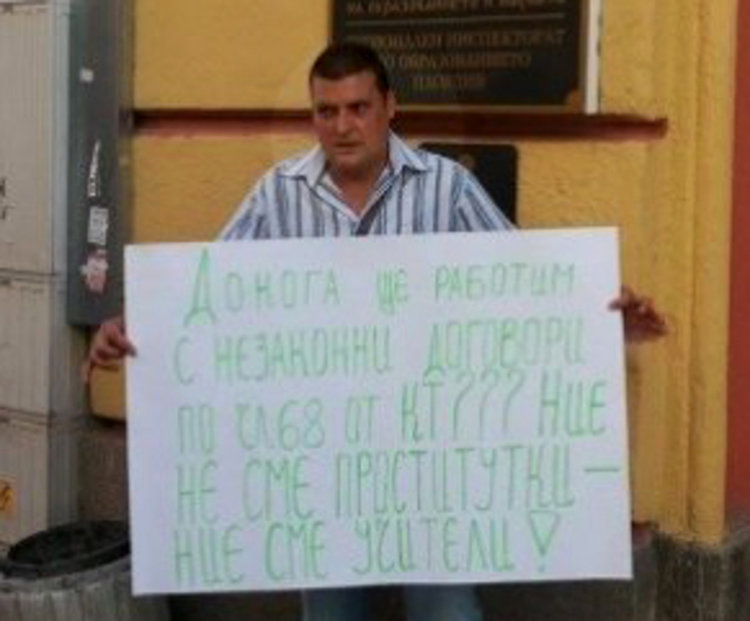 на образованието и науката
РЕГИОНАЛЕН ИНСПЕКТОРАТ
ПО ОБРАЗОВАНИЕТО
ПЛОВДИВ
ДОКОГА ЩЕ РАБОТИМ
С НЕЗАКОННИ ДОГОВОРИ
ПО ЧЛ68 ОТ КТ??? НИЕ
НЕ СМЕ ПРОСТИТУТКИ –
НИЕ СМЕ УЧИТЕЛИ!